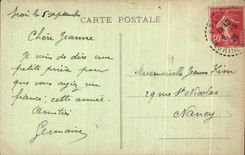 CARTE POSTALE
le 5 septembre
Chère Jeanne
Je viens de dire une
petite prière pour
que vous ayez un
fiancé cette année.
Amitiés
Germaine
Mademoiselle Jeanne
29 rue St Nicolas
Nancy